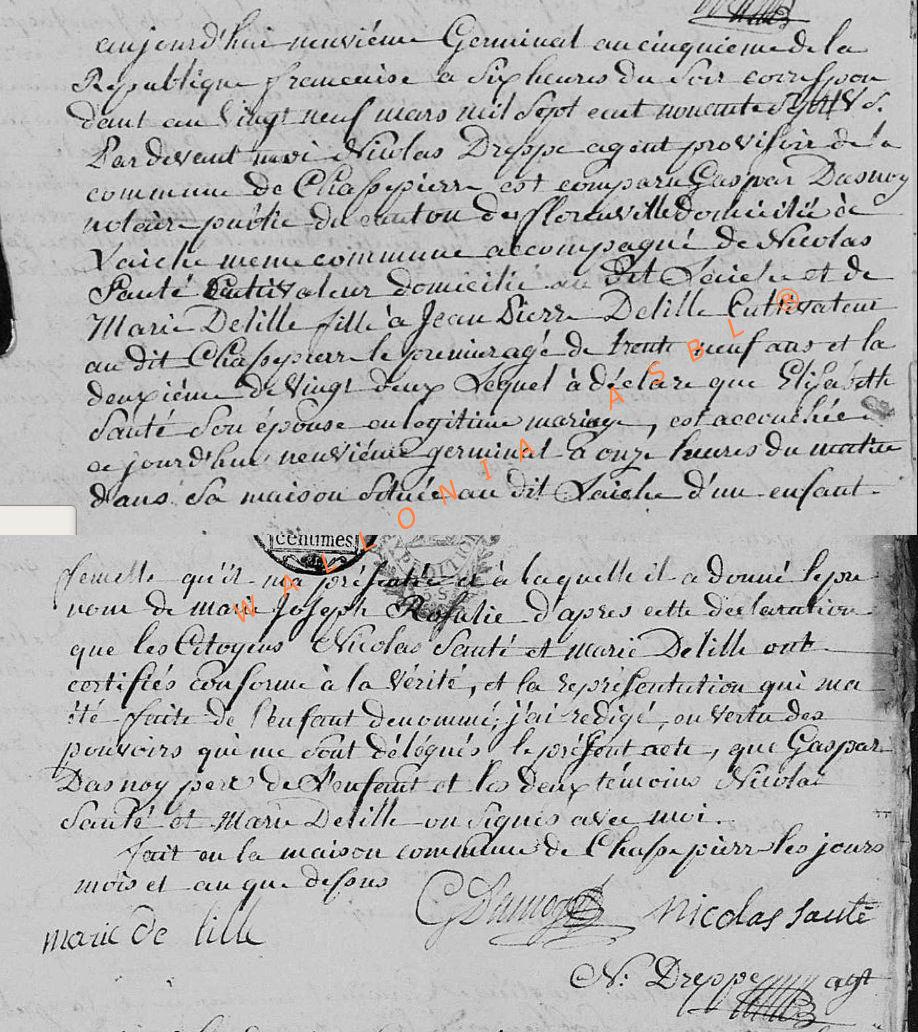 aujourd'hui neuviéme Germinal an cinquieme de la
Republique francoise a Six heures du Soir correspon
dant au Vingt neuf mars mil Sept cent nonante Sept V S.
Par devant moi Nicolas Dreppe agent provisoir de la
commune de Chassepierre est comparu Gaspar Dasnoy
notair public du canton de florenville domicilié à
Laiche meme commune accompagné de Nicolas
Santé Cultivateur domicilié au dit Laiche et de
Marie Delille fille à Jean Pierre Delille Cultivateur
au dit Chassepierre le premier agé de trente neuf ans et la
deuxiéme de Vingt deux Lequel à déclare que Elisabeth
Santé Son épouse en legitime mariage, est accouchée
ce jourd'hui neuviéme germinal à onze heures du matin
dans Sa maison Située au dit Laiche d'un enfant
centimes
femelle qu'il ma présenté et à laquelle il a donné le pre
nom de marie Joseph Rosalie d'apres cette declaration
que les Citoyens Nicolas Santé et marie Delille ont
certifiés conforme à la Vérité, et la représentation qui ma
été faite de l'enfant denommé, j'ai redigé, en Vertu des
pouvoirs qui me sont délégués le présent acte, que Gaspar
Dasnoy pere de l'enfant et les deux témoins Nicolas
Santé et Marie Delille on Signés avec moi.
Fait en la maison commune de Chassepierre les jours
mois et an que dessus
G Dasnoy Nicolas Santé
marie de lille
N: Dreppe agt
WALLONIA ASBL ®